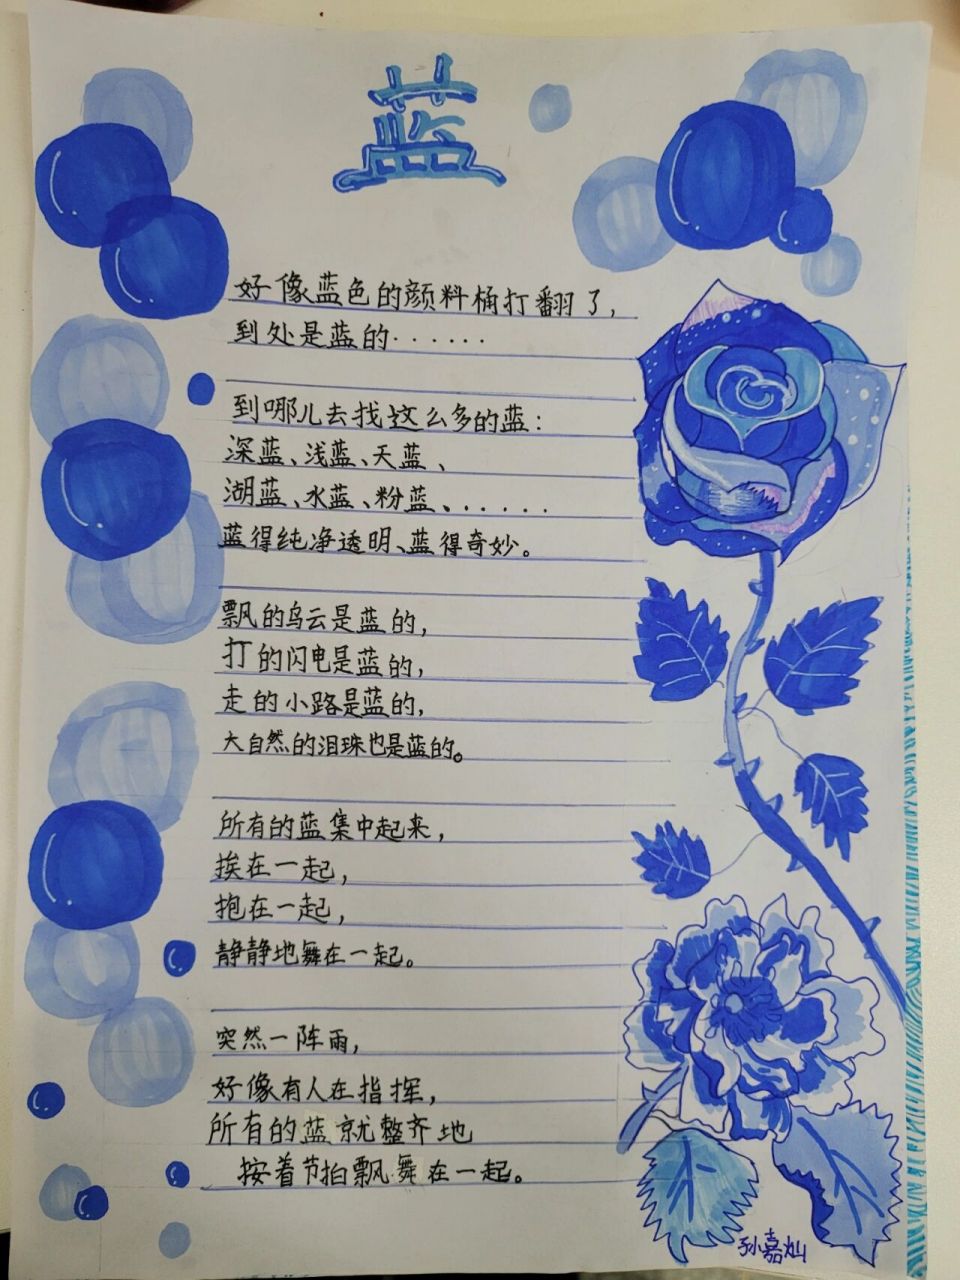 蓝
好像蓝色的颜料桶打翻了,
到处是蓝的······
到哪儿去找这么多的蓝:
深蓝、浅蓝、天蓝、
湖蓝、水蓝、粉蓝、······
蓝得纯净透明、蓝得奇妙。
飘的乌云是蓝的,
打的闪电是蓝的,
走的小路是蓝的,
大自然的泪珠也是蓝的。
所有的蓝集中起来,
挨在一起,
抱在一起,
静静地舞在一起。
突然一阵雨,
好像有人在指挥,
所有的蓝就整齐地
按着节拍飘舞在一起。
孙嘉灿